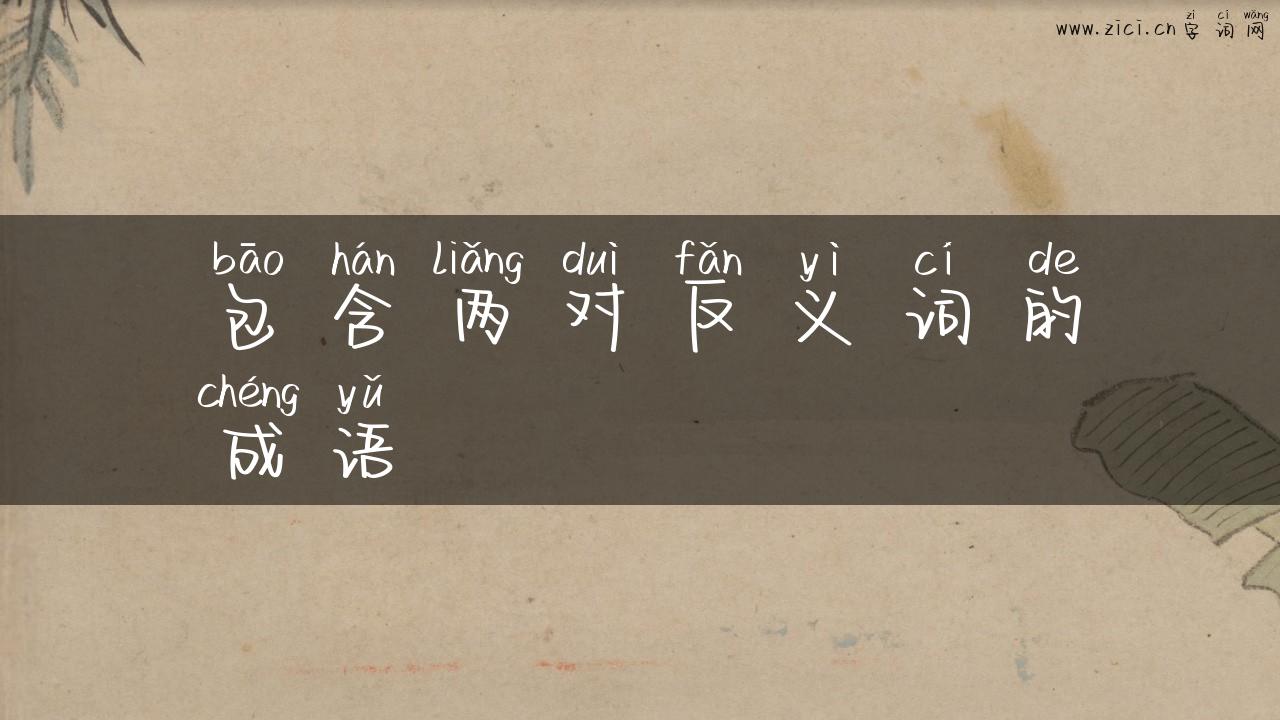 zì cí wǎng
www.zici.cn 字词网
bāo hán liǎng duì fǎn yì cí de
包含两对反义词的
chéng yǔ
成语